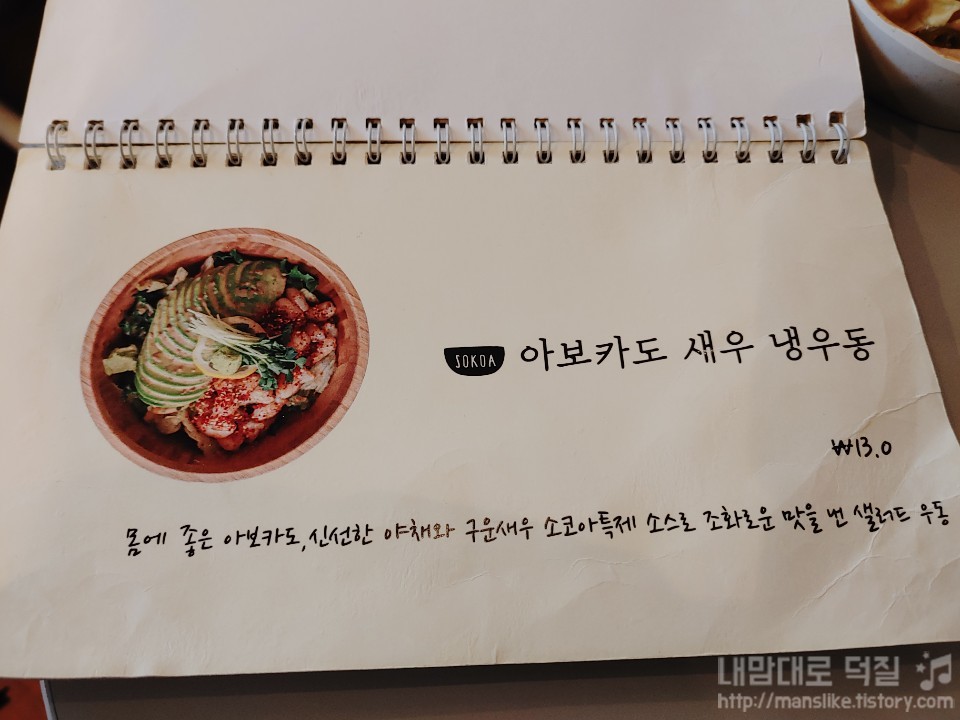 SOKOA 아보카도 새우 냉우동
₩13.0
몸에 좋은 아보카도, 신선한 야채와 구운새우 소코아특제 소스로 조화로운 맛을 낸 샐러드 우동
내맘대로 덕질
http://manslike.tistory.com